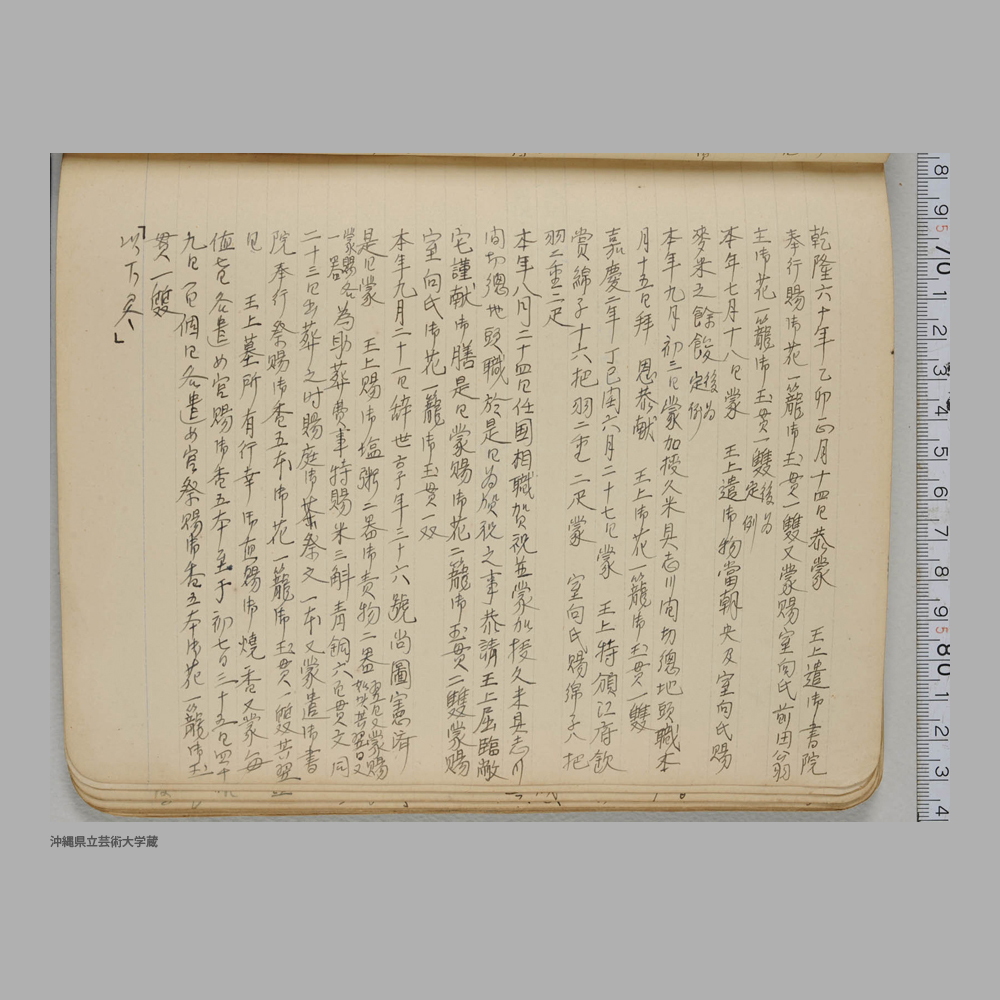 乾隆六十年乙卯正月十四日恭蒙　王上遣御書院
奉行賜御花一籠御玉貫一雙又蒙賜室向氏前田翁
主御花一籠御玉貫一雙後為定例
本年七月十八日蒙　王上遣御物當朝央及室向氏賜
麥米之餘餕後為定例
本年九月初三日蒙加授久米具志川間切總地頭職本
月十五日拜　恩恭献　王上御花一籠御玉貫一雙
嘉慶二年丁巳閏六月二十七日蒙　王上特頒江府欽
賞綿子十六把羽二重二疋蒙　室向氏賜綿子八把
羽二重二疋
本年八月二十四日任国相職賀祝並蒙加授久米具志川
間切總地頭職於是日為賀祝之事恭請王上屈臨敝
宅謹献御膳是日蒙賜御花二籠御玉貫二雙蒙賜
室向氏御花一籠御玉貫一双
本年九月二十一日辞世享年三十六號尚圖憲濟
是日蒙　王上賜御塩粥二器御責物二器
蒙賜各一器為助葬費事特賜米三斛青銅六百貫文同
二十三日出葬之时賜庭御葉祭文一本又蒙遣御書
院奉行祭賜御香五本御花一籠御玉貫一雙其翌
日　王上墓所有行幸御直賜御燒香又蒙每
値七日各遣め官賜御香五本至于初七日三十五日四十
九日百個日各遣め官祭賜御香五本御花一籠御玉
貫一雙
「以下欠」
8 9 5 70 1 2 3 4 5 6 7 8 9 5 80 1 2 3 4
沖縄県立芸術大学蔵